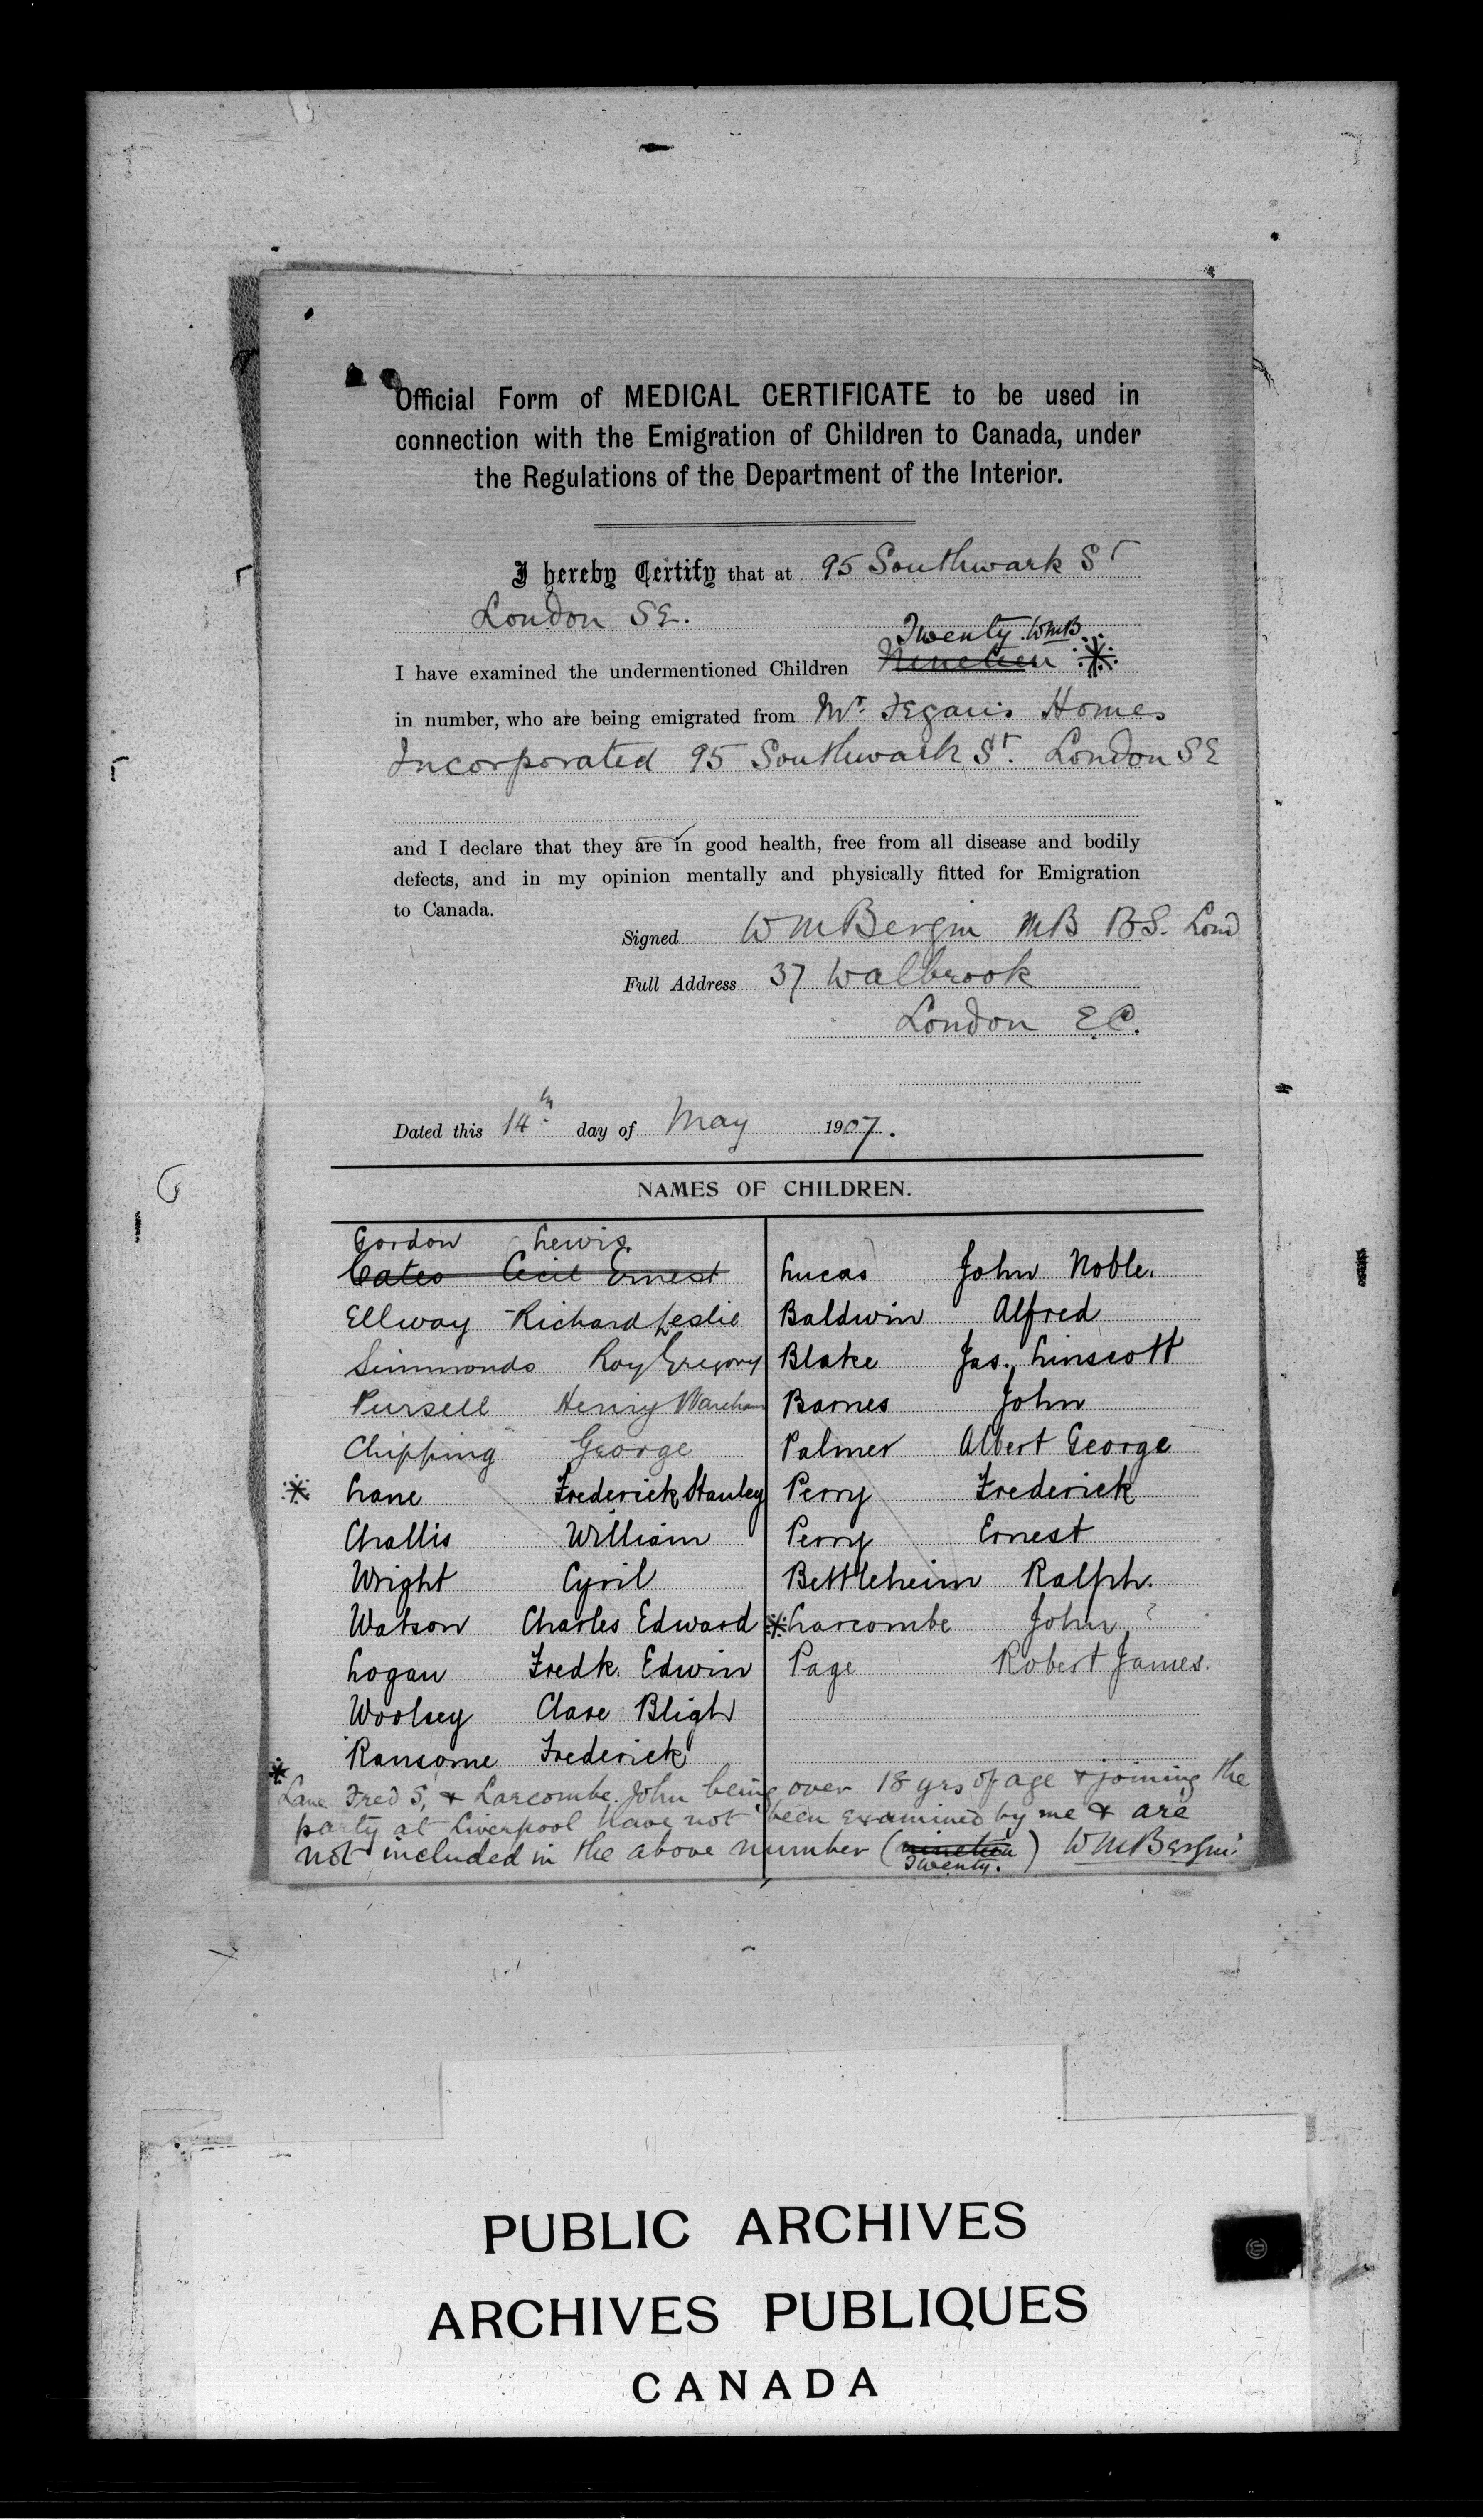 Official Form of MEDICAL CERTIFICATE to be used in
connection with the Emigration of Children to Canada, under
the Regulations of the Department of the Interior.
I hereby Certify that at 95 Southwark St
London SE.
Twenty. WMB
I have examined the undermentioned Children Nineteen *
in number, who are being emigrated from Mr. Fegan's Homes
Incorporated 95 Southwark St. London SE
and I declare that they are in good health, free from all disease and bodily
defects, and in my opinion mentally and physically fitted for Emigration
to Canada.
Signed W M Bergin MB BS. Lond
Full Address 37 Walbrook
London E.C.
Dated this 14th day of May 1907.
NAMES OF CHILDREN.
Gordon Lewis.
Cates Cecil Ernest
Ellway Richard Leslie
Simmonds Roy Gregory
Pursell Henry Wareham
Chipping George
* Lane Frederick Stanley
Challis William
Wright Cyril
Watson Charles Edward
Logan Fredk. Edwin
Woolsey Clare Bligh
Ransome Frederick
Lucas John Noble.
Baldwin Alfred
Blake Jas. Linscott
Barnes John
Palmer Albert George
Perry Frederick
Perry Ernest
Bettleheim Ralph.
* Larcombe John ?
Page Robert James.
* Lane Fred S, & Larcombe John being over 18 yrs of age & joining the
party at Liverpool have not been examined by me & are
not included in the above number (nineteen) W M Bergin
Twenty.
PUBLIC ARCHIVES
ARCHIVES PUBLIQUES
CANADA